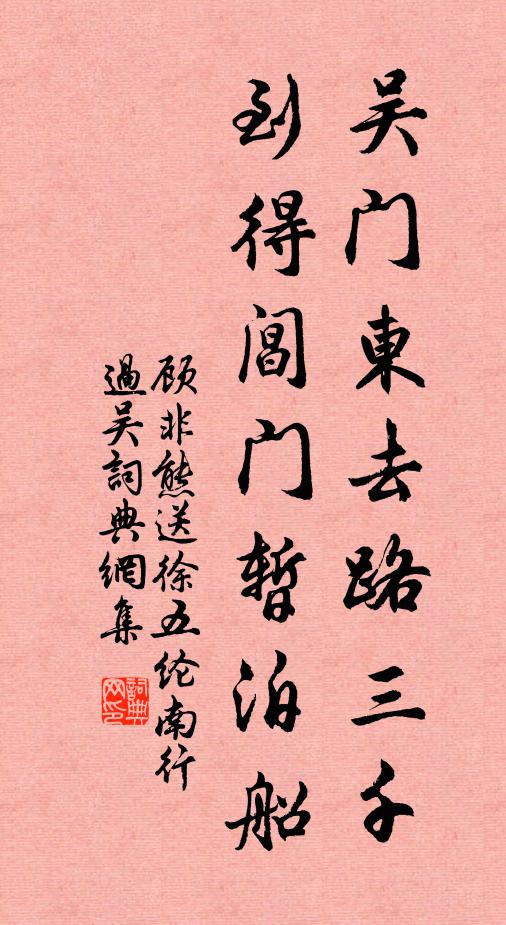 吴门東去路三千
到得閶门暫泊船
顾非熊送徐五纶南行
過吴詞典網集
詞典网印